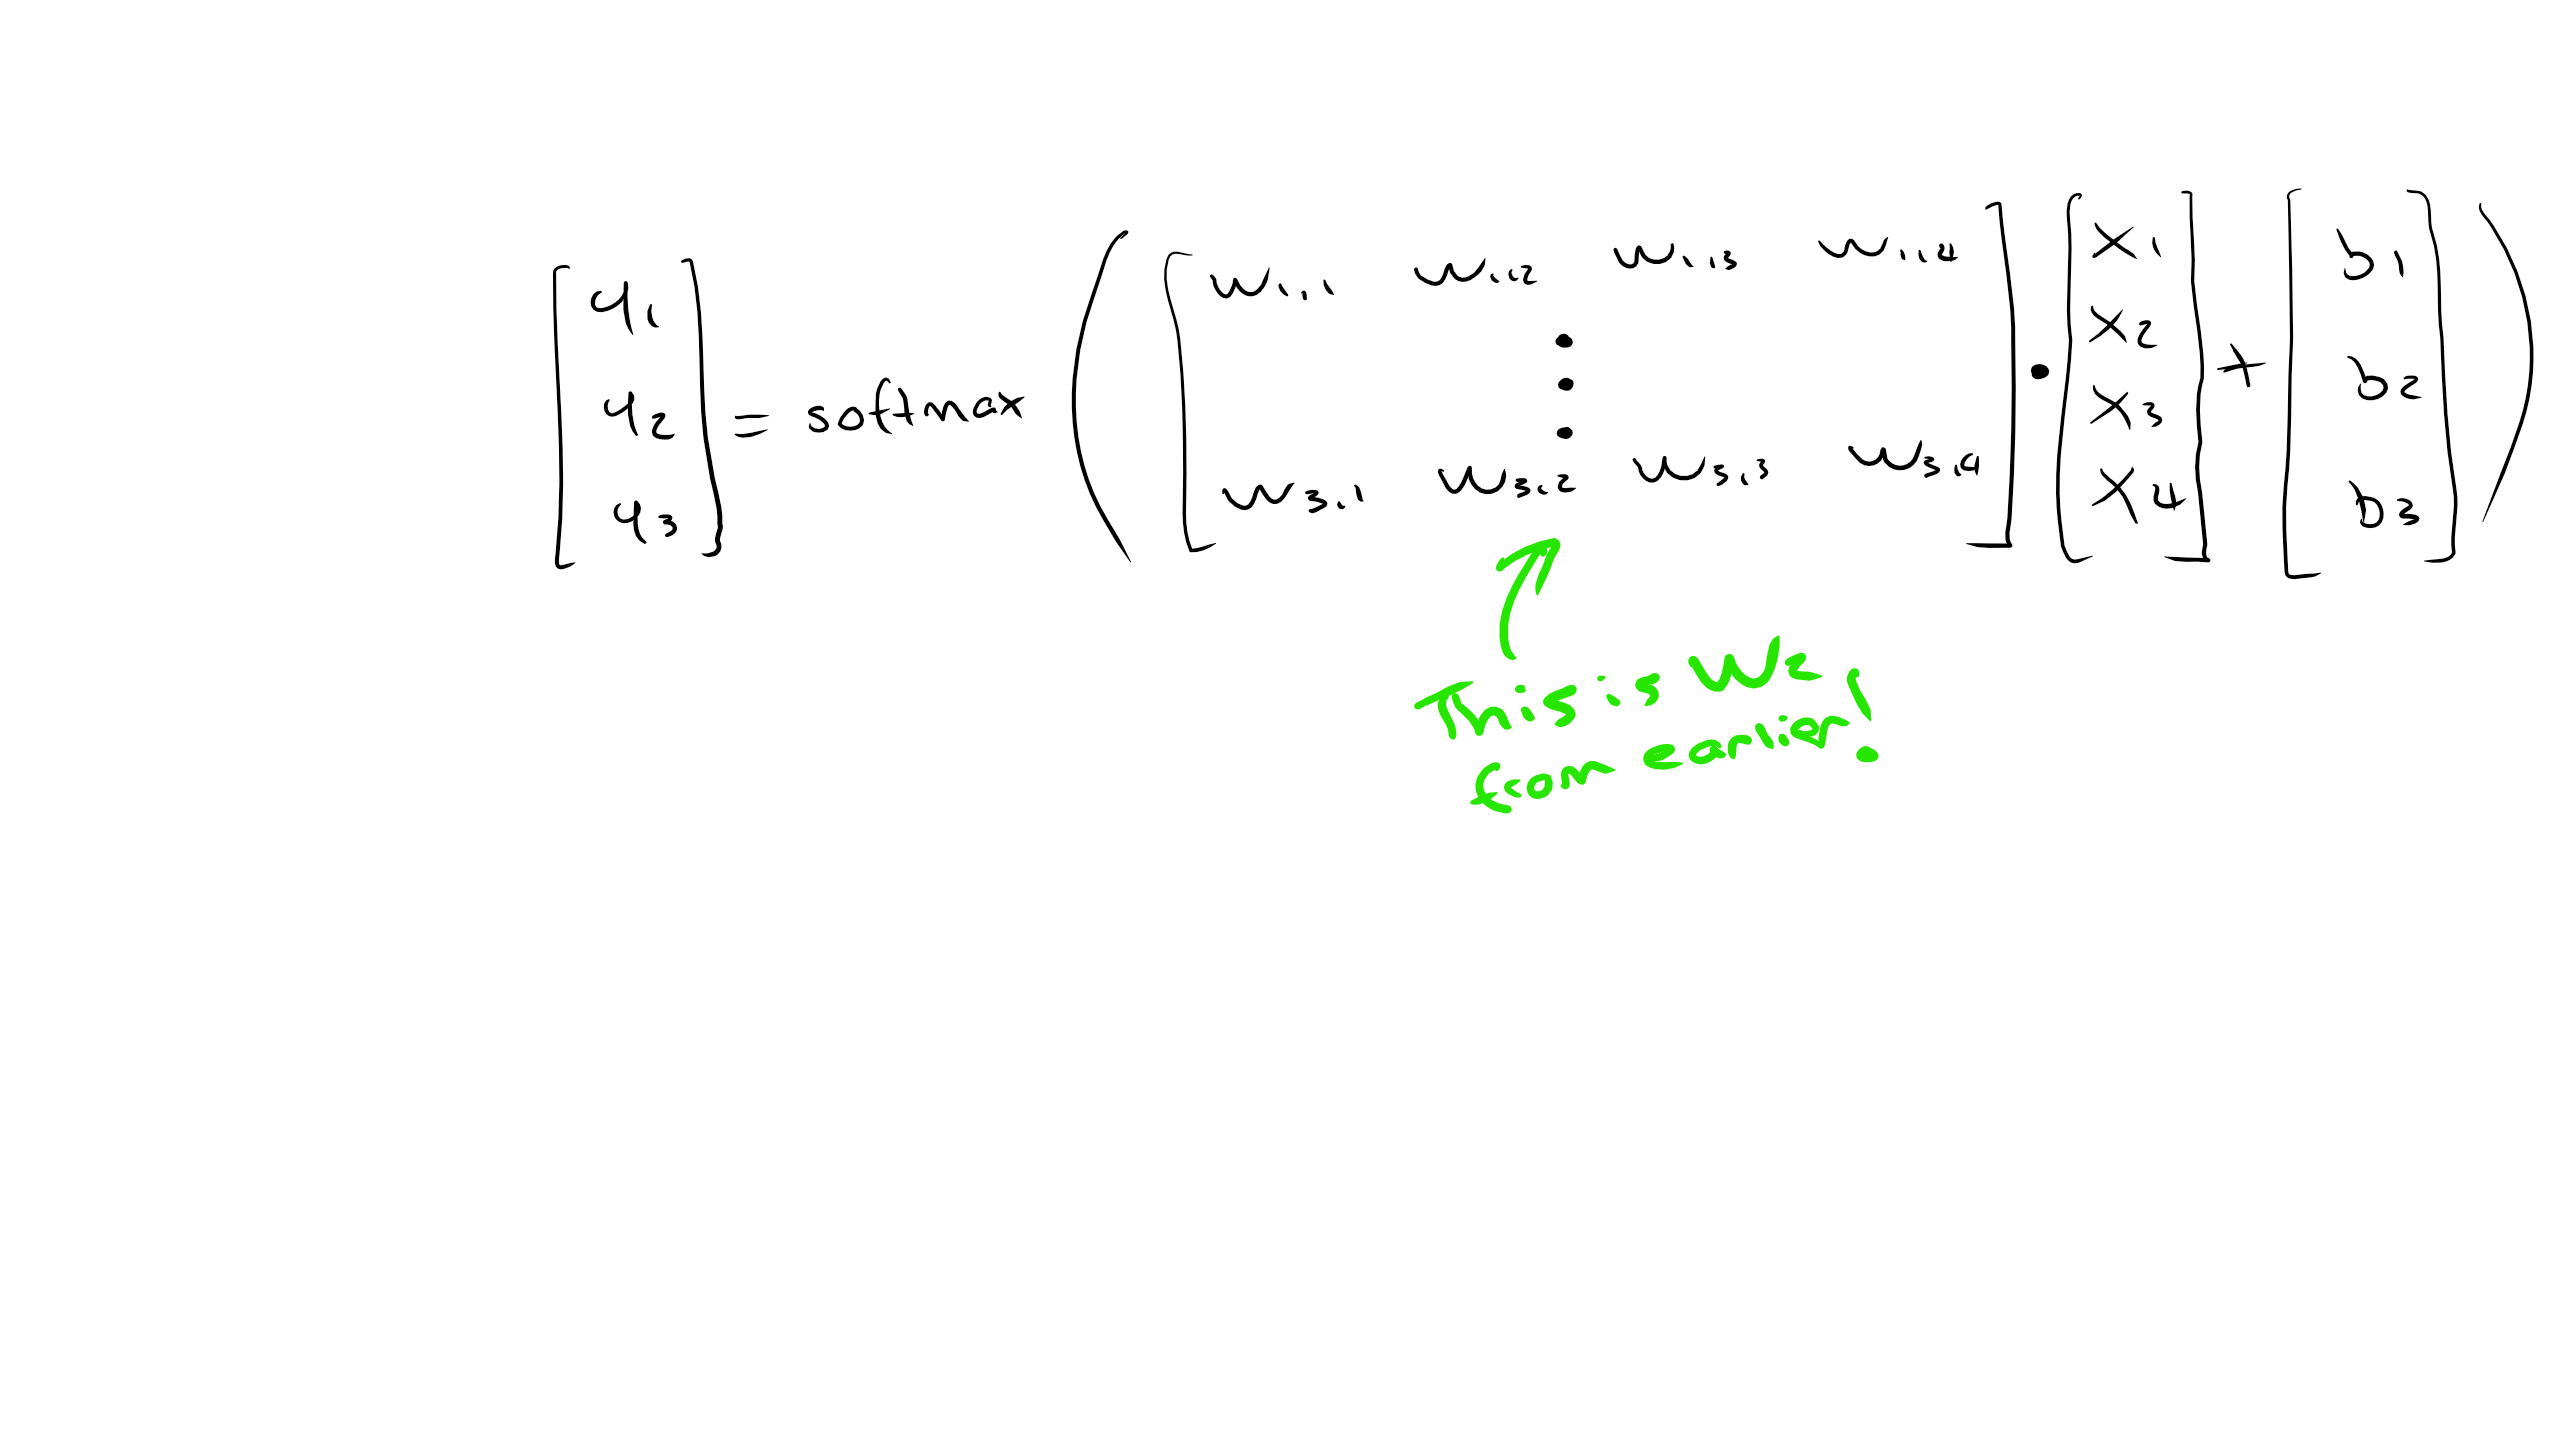 [y1 y2 y3] = softmax ( [w1,1 w1,2 w1,3 w1,4
⋮
w3,1 w3,2 w3,3 w3,4] • [x1 x2 x3 x4] + [b1 b2 b3] )
This is W2
from earlier!